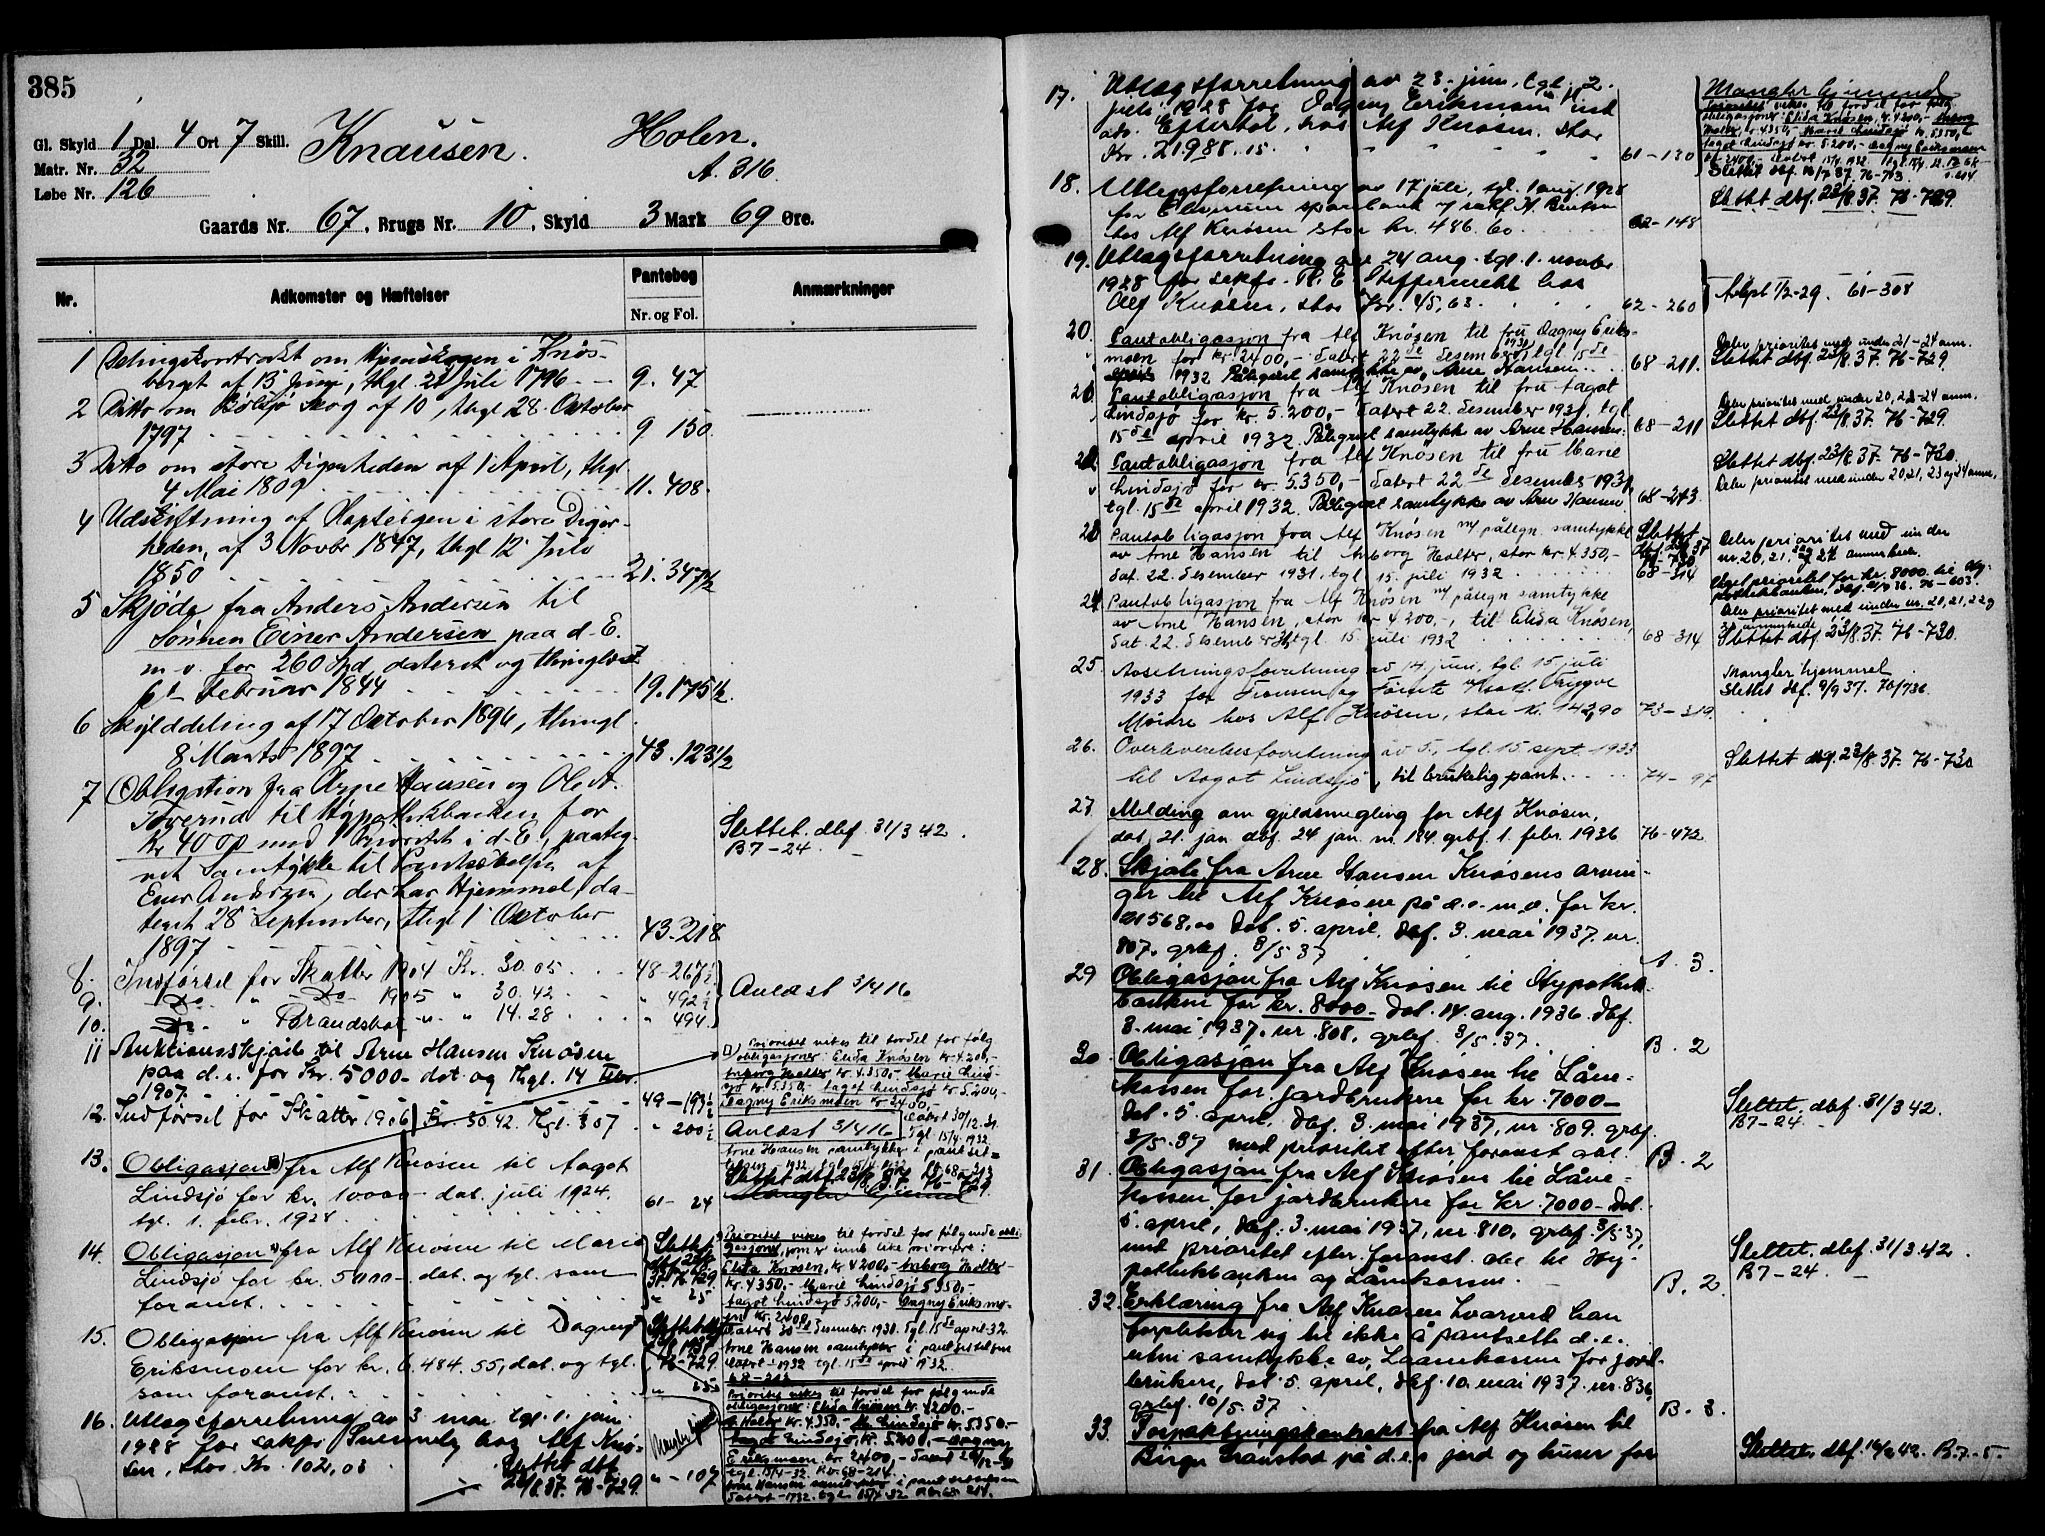 385
Gl. Skyld 1 Dal. 4 Ort 7 Skill. Knausen. Holen.
Matr. Nr. 32 A. 316.
Løbe Nr. 126
Gaards Nr. 67, Brugs Nr. 10, Skyld 3 Mark 69 Øre.
Nr. Adkomster og Hæftelser Pantebog Anmærkninger
Nr. og Fol.
1 Delingskontrakt om i Knøs-
berget af 15 Juni, thgl 21 Juli 1796 9. 47
2 Ditto om Skog af 10, thgl 28. October
1797 9 150.
3 Ditto om store Digerheden af 1 April, thgl.
4 Mai 1809 11. 408.
4 Udskiftning af i store Diger-
heden, af 3 Novbr 1847, thgl 12 Julo
1850 21. 347 1/2
5 Skjøde fra Anders Andersen til
Sønnen Einer Andersen paa d. E.
m. v. for 260 Spd, dateret og thinglæst
6t Februar 1844 19. 175 1/2.
6 Skylddeling af 17 October 1896, thingl.
8 Marts 1897 43. 123 1/2
7 Obligation fra Arne Hansen og Ole A.
til Hypothekbanken for
Kr 4000 med 1 Prioritet i d. E., paateg-
net Samtykke til Pantsættelsen af
Einer Andersen, der har Hjemmel, da-
teret 28 September, thgl 1 October
1897 43. 218
Slettet. dbf. 31/3 42.
B7-24.
8. Indførsel for Skatter 1904 Kr. 30.05 48-267 1/2
9. Do. " Do 1905 " 30.42 " 492 1/2
10. Do. " Brandskat " " 14.28 " 494.
Avlæst 3/4 16
11 Auktionsskjøde til Arne Hansen Knøsen
paa d. e. for Kr. 5000- dat. og thgl. 14 Febr.
1907. 49-193 1/2
12. Indførsel for Skatter 1906 Kr. 30.42. Tgl. 07 " 200 1/2
Prioritet vikes til fordel for følg.
obligasjoner: Elida Knøsen kr 4.200,-
Inborg Holter kr. 4.350,- Marie Lind-
sjø kr. 5.350,- Aagot Lindsjø kr. 5.200,-
Dagny Eriksmoen kr 2400,-
Avlæst 3/4 16
datert 30/12.31.
Tgl 15/4. 1932.
Arne Hansen samtykker i pantset-
13. Obligasjon fra Alf Knøsen til Aagot
Lindsjø for kr. 10000- dat. juli 1924.
tgl. 1. febr. 1928. 61-24
Slettet dbf 23/8 37. 76-729.
Mangler hjemmel
14. Obligasjon fra Alf Knøsen til Marie
Lindsjø for kr. 5000- dat. og tgl. som
foranst. " 25
Prioritet vikes til fordel for følgende obli-
gasjoner, som er innb. like prioritet:
Elida Knøsen, kr 4200,- Inborg Holter
kr. 4350,- Marie Lindsjø 5350,-
Aagot Lindsjø 5200,- Dagny Eriksmo-
en kr. 2400,
15. Obligasjon fra Alf Knøsen til Dagny
Eriksmoen for kr. 6.484.55, dat. og tgl.
som foranst.
datert 30te Desember 1931. Tgl. 15de april 32.
Arne Hansen samtykker i pantsettelsen
datert - 1932 tgl 15de april 1932.
68-213
16. Utlægsforretning av 3 mai tgl. 1. juni
1928 for sakfr. hos Alf Knø-
sen, stor Kr. 102,03 " -107
Slettet dbf
23/8 37. 76-729.
Mangler hjemmel
Prioritet vikes til fordel for følgende
obligasjoner: Elida Knøsen kr. 4200.-
I. Holter kr. 4.350,- M. Lindsjø kr. 5350.-
Aagot Lindsjø, kr. 5.200,- Dagny
Eriksmoen kr 2400,- Datert
tgl. 15/4-32. P.b. 68-214.
Arne Hansen samtykker i pantsettelsen
Datert -1932. tgl. 15/4 32
17. Utlægsforretning av 23. juni, tgl. 2.
juli 1928 for Dagny Eriksmoen ved
adv. Eftertal, hos Alf Knøsen, stor
Kr. 21988.15. 61-130
Mangler hjemmel
Prioritet vikes til fordel for følg.
obligasjoner Elida Knøsen, kr. 4200,- Inborg
Holter, kr 4350,- Marie Lindsjø kr. 5350,-
Aagot Lindsjø kr. 5.200,- Dagny Eriksmoen
kr 2400,-
Slettet dbf. 37. 76-713.
18. Utlegsforretning av 17 juli, tgl. 1 aug. 1928
for Elverum sparebank v/ sakf. H.
hos Alf Knøsen stor kr. 486.60. 62-148
Slettet dbf. 23/8 37. 76-729.
19. Utlægsforretning av 24 aug. tgl. 1. novbr
1928 for sakfr. Th. E. hos
Alf Knøsen, stor Kr. 45,63 62-260
Avlyst 1/2-29. 61-308
20 Pantobligasjon fra Alf Knøsen til fru Dagny Eriks-
moen for kr. 2400,- datert 22de Desember 1931 tgl 15de
april 1932 Påtegnet samtykke av Arne Hansen. 68-211.
Deler prioritet med under 21-24 anm.
Slettet dbf. 23/8 37. 76-729
21 Pantobligasjon fra Alf Knøsen til fru Aagot
Lindsjø for kr. 5.200,- datert 22. desember 1931, tgl
15de april 1932. Påtegnet samtykke av Arne Hansen. 68-211
Deler prioritet med under 20, 22-24 anm.
Slettet dbf. 23/8 37. 76-729.
22 Pantobligasjon fra Alf Knøsen til fru Marie
Lindsjø for kr. 5350,- datert 22de Desember 1931,
tgl. 15de april 1932. Påtegnet samtykke av Arne Hansen. 68-213.
Slettet dbf. 23/8 37. 76-730.
Deler prioritet med under 20, 21, 23 og 24 anm.
23 Pantobligasjon fra Alf Knøsen m/ påtegn. samtykke
av Arne Hansen til Inborg Holter, stor kr. 4.350,-
dat. 22. desember 1931, tgl. 15. juli 1932 68-314
Slettet
dbf. 23/8 37
76-730
Deler prioritet med under
nr. 20, 21, 22 og 24 anmerkede.
24. Pantobligasjon fra Alf Knøsen m/ påtegn samtykke
av Arne Hansen, stor kr 4200.-, til Elida Knøsen,
dat. 22. desember 31, tgl. 15 juli 1932 68-314
Veget prioritet for kr. 8000. til Hy-
pothekbanken, dbf. 36. 76-603.
Deler prioritet med under nr. 20, 21, 22 og
23 anmerkede.
Slettet dbf. 23/8 37. 76-730.
25. Avsetningsforretning av 14 juni, tgl. 15 juli
1933 for Fransen og v/sakf. Trygve
hos Alf Knøsen, stor kr. 142,90 73-319.
Mangler hjemmel
Slettet dbf. 9/9 37. 76/736.
26. Overleverelsesforretning av 5., tgl. 15 sept. 1933
til Aagot Lindsjø, til brukelig pant. 74-97
Slettet dbf. 23/8 37. 76-730
27. Melding om gjeldsmegling for Alf Knøsen,
dat. 21. jan dbf. 24 jan. nr. 184. grbf. 1. febr. 1936 76-472
28. Skjøte fra Arne Hansen Knøsens arvin-
ger til Alf Knøsen på d. e. m. v. for kr.
21568,00 dat. 5. april, dbf. 3. mai 1937. nr.
807. grbf. 3/5 37 A. 3.
29 Obligasjon fra Alf Knøsen til Hypothek-
banken for kr. 8000- dat. 14. aug. 1936. dbf.
3. mai 1937. nr 808, grbf. 3/5.37. B. 2
30. Obligasjon fra Alf Knøsen til Låne-
kassen for jordbrukere for kr. 7000-
Dat. 5. april, dbf. 3. mai 1937, nr. 809. grbf.
3/5.37 med prioritet efter foranst. obl. B. 2
Slettet. dbf. 31/3 42.
B7-24.
31. Obligasjon fra Alf Knøsen til Låne-
kassen for jordbrukere for kr. 7000- dat.
5. april, dbf. 3. mai 1937, nr 810, grbf. 3/5.37,
med prioritet efter foranst. obl. til Hy-
pothekbanken og Lånekassen. B. 2.
Slettet. dbf. 31/3 42.
B7-24.
32. Erklæring fra Alf Knøsen hvorved han
forplikter sig til ikke å pantsette d. e.
uten samtykke av Laanekassen for jord-
brukere, dat. 5. april, dbf. 10. mai 1937. nr. 836,
grbf. 10/5 37. B. 3.
33. Forpaktningskontrakt fra Alf Knøsen til
Birger Granstad på d. e.s jord og huser for
Slettet. dbf. 42. B.7.-5.